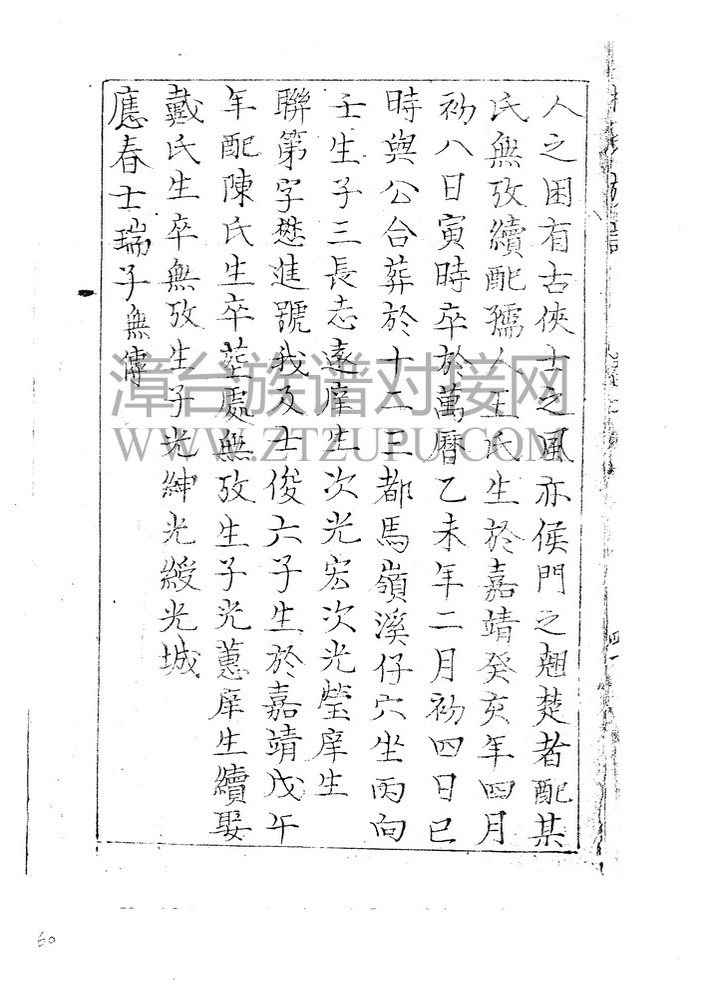 人之困有古俠士之風亦侯門之翹楚者配某
氏無攷續配孺人王氏生於嘉靖癸亥年四月
初八日寅時卒於萬曆乙未年二月初四日巳
時與公合葬於十二三都馬嶺溪仔穴坐丙向
壬生子三長志遠庠生次光宏次光瑩庠生
聯第字懋進號我及士俊六子生於嘉靖戊午
年配陳氏生卒塟處無攷生子光蕙庠生續娶
戴氏生卒無攷生子光紳光綬光城
應春士瑞子無傳
漳台族谱对接网
WWW.ZTZUPU.COM
60